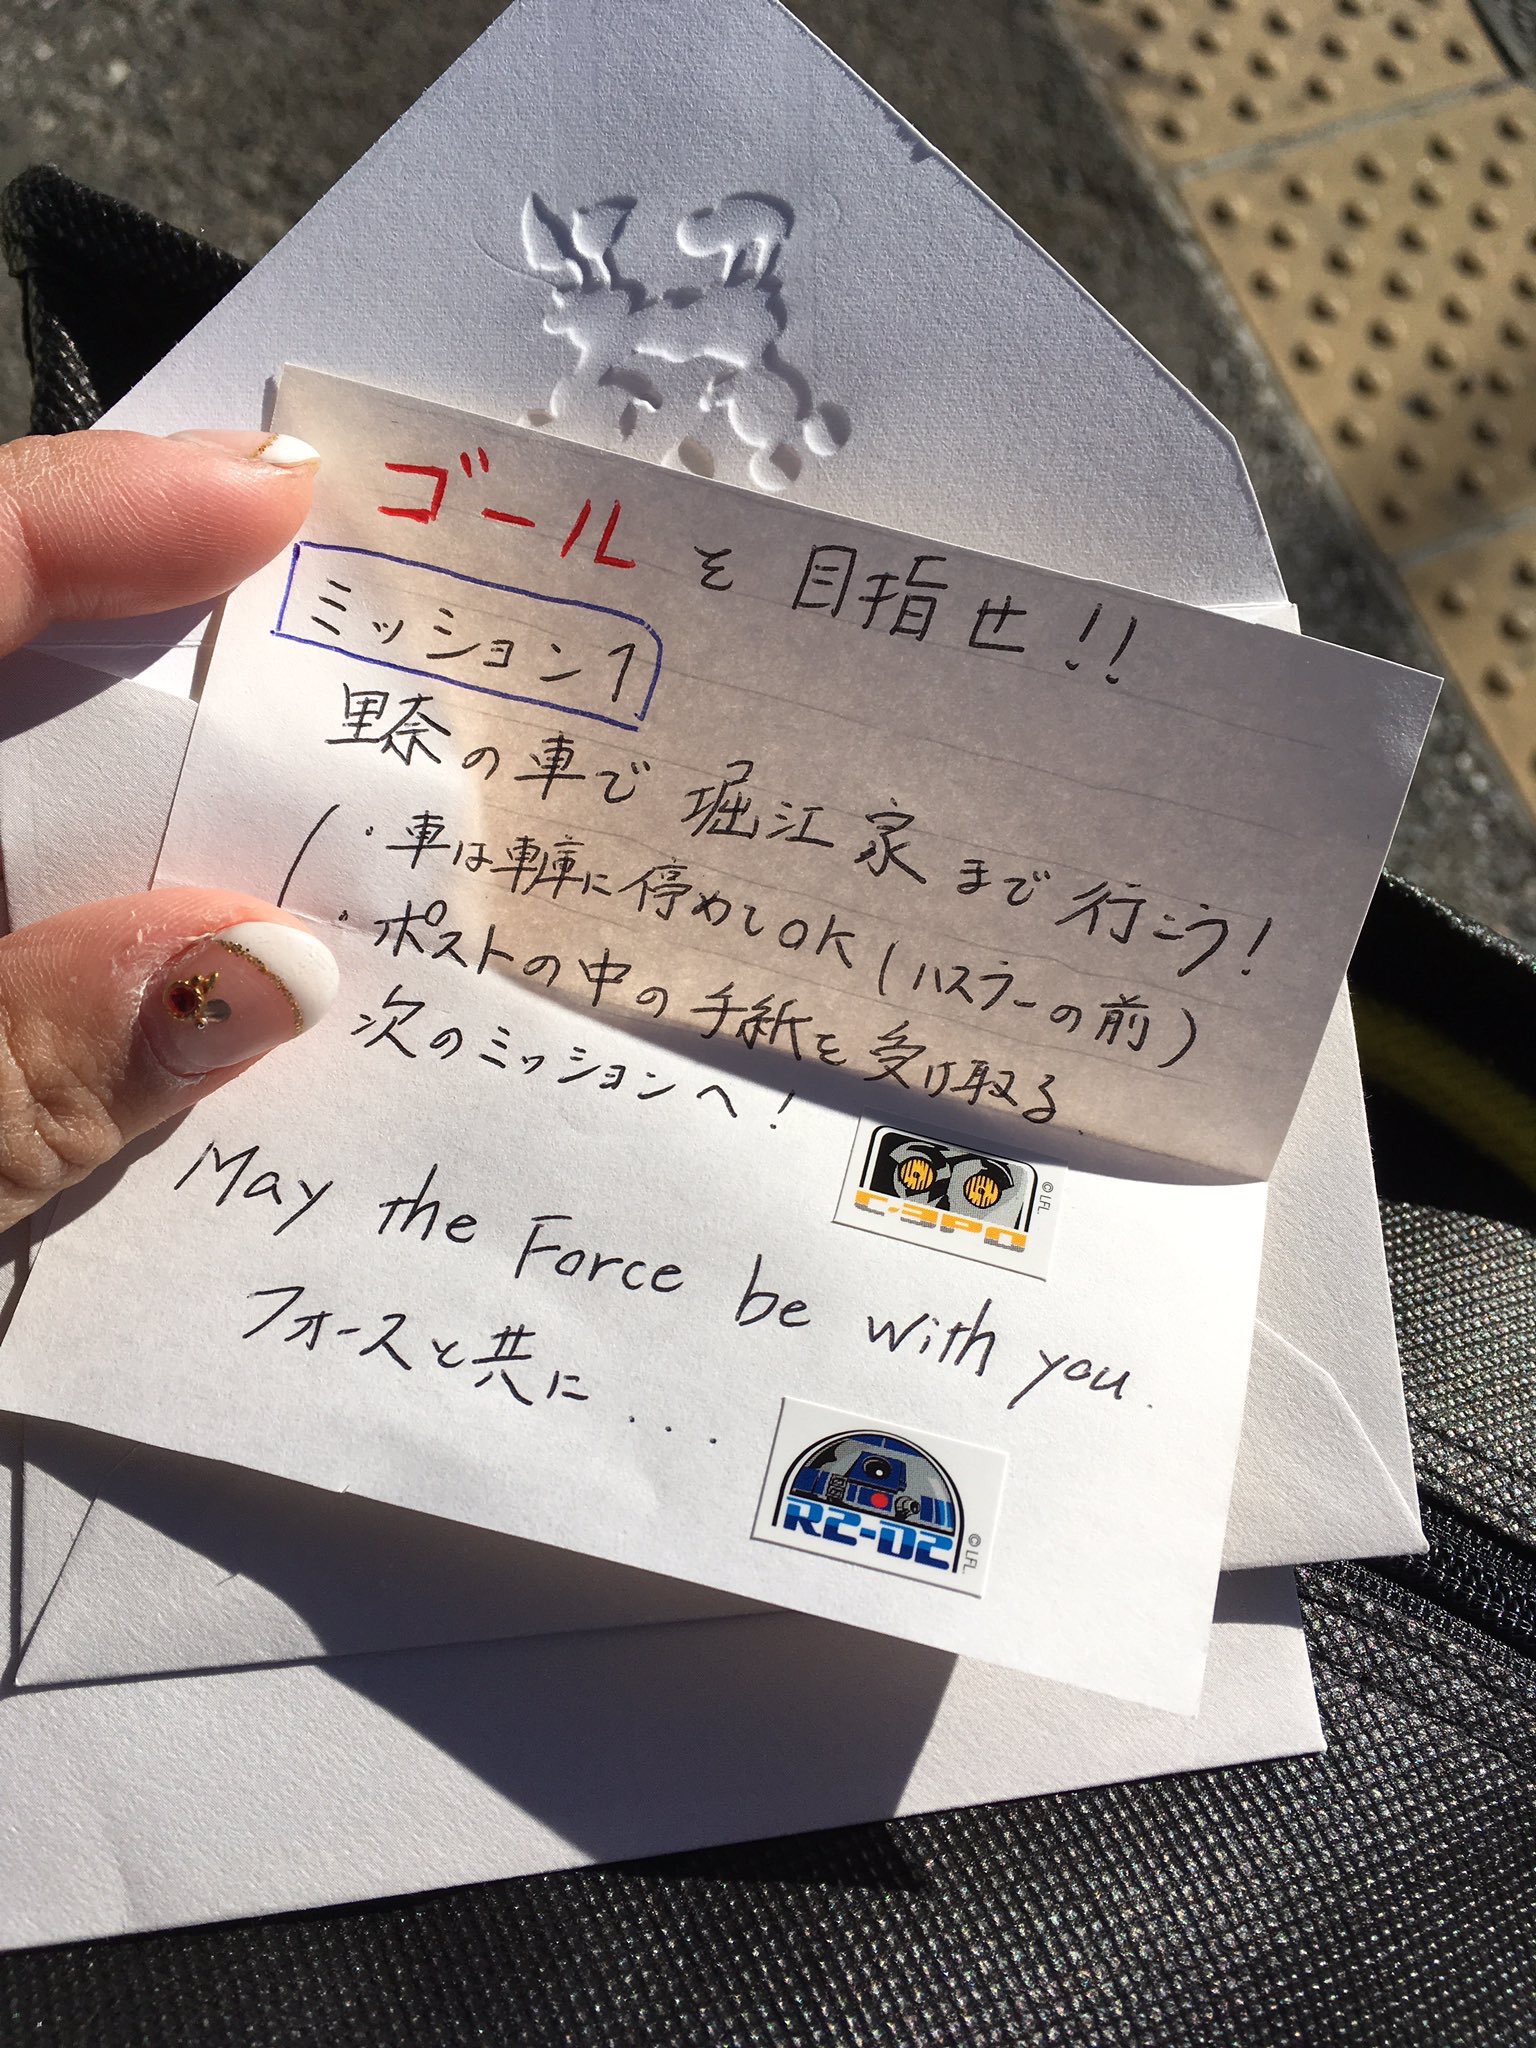 ゴールを目指せ!!
ミッション1
里奈の車で堀江家まで行こう!
・車は車庫に停めてOK(ハスラーの前)
・ポストの中の手紙を受け取る
次のミッションへ!
C-3PO
© LFL.
May the Force be with you.
フォースと共に...
R2-D2
© LFL.